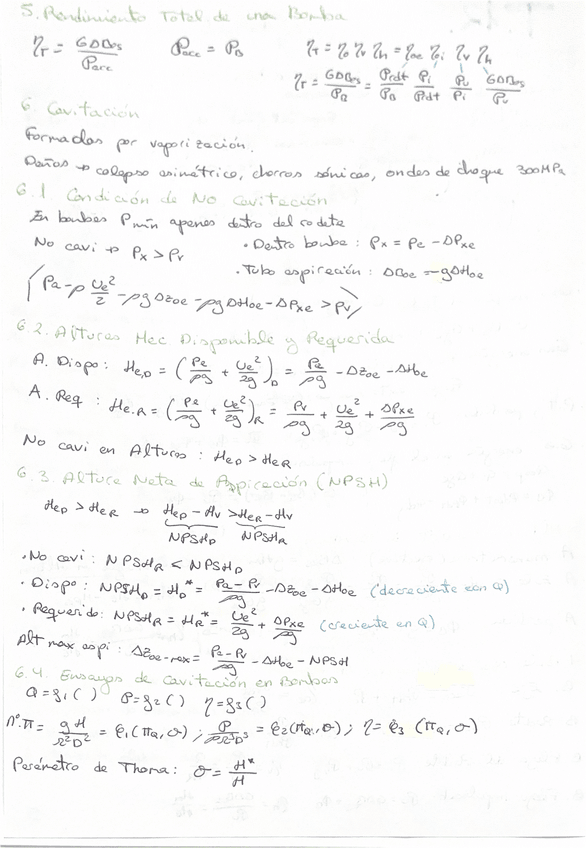 5. Rendimiento Total de una Bomba
η_T = GΔB_es / P_acc    P_acc = P_B    η_T = η_o η_v η_h = η_oe η_i η_v η_h
η_T = GΔB_es / P_B = P_rdt / P_B · P_i / P_rdt · P_v / P_i · GΔB_es / P_v
6. Cavitación
Formadas por vaporización.
Daños → colapso asimétrico, chorros sónicos, ondas de choque 300MPa
6.1. Condición de No Cavitación
En bombas P mín apenas dentro del rodete
No cavi → P_x > P_v    · Dentro bomba: P_x = P_e - ΔP_xe
· Tubo aspiración: ΔB_oe = -gΔH_oe
P_a - ρ U_e²/2 - ρgΔz_oe - ρgΔH_oe - ΔP_xe > P_v
6.2. Alturas Hec Disponible y Requerida
A. Dispo: H_e,D = (P_e/ρg + U_e²/2g)_D = P_a/ρg - Δz_oe - ΔH_oe
A. Req: H_e,R = (P_e/ρg + U_e²/2g)_R = P_v/ρg + U_e²/2g + ΔP_xe/ρg
No cavi en Alturas: H_eD > H_eR
6.3. Altura Neta de Aspiración (NPSH)
H_eD > H_eR → H_eD - H_v > H_eR - H_v
NPSH_D    NPSH_R
· No cavi: NPSH_R < NPSH_D
· Dispo: NPSH_D = H_D* = (P_a - P_v)/ρg - Δz_oe - ΔH_oe (decreciente con Q)
· Requerido: NPSH_R = H_R* = U_e²/2g + ΔP_xe/ρg (creciente en Q)
Alt max aspi: Δz_oe-max = (P_a - P_v)/ρg - ΔH_oe - NPSH
6.4. Ensayos de Cavitación en Bombas
Q = f_1( )    P = f_2( )    η = f_3( )
nº π = gH/Ω²D² = φ_1(π_Q, σ); P/ρΩ³D⁵ = φ_2(π_Q, σ); η = φ_3 (π_Q, σ)
Parámetro de Thoma: σ = H*/H